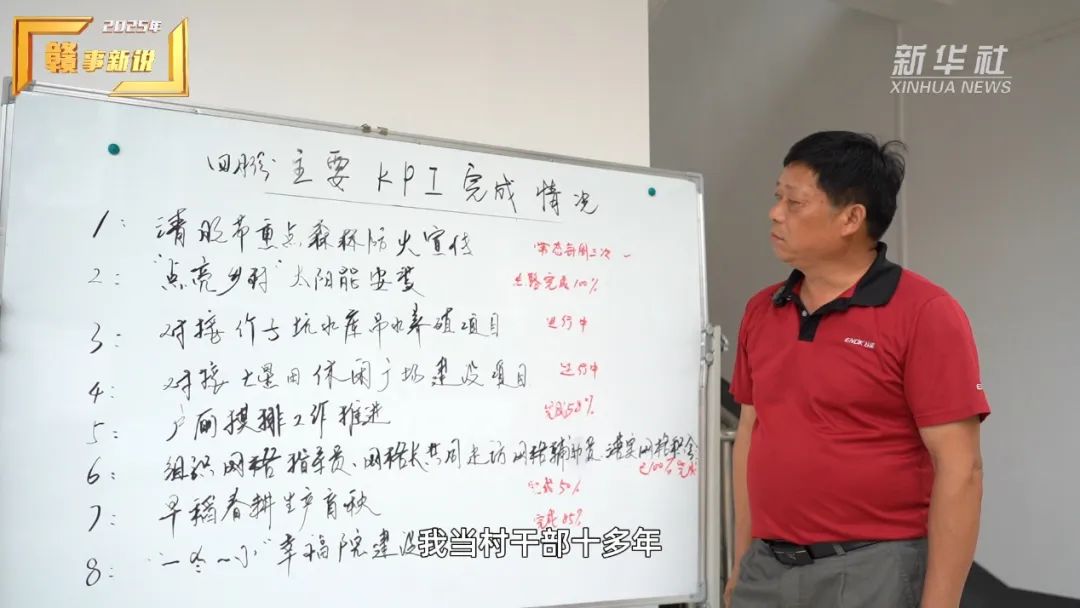 2025年
赣事新说
新华社
XINHUA NEWS
四月份主要KPI完成情况
1：清明节重点森林防火宣传 常态每周三次
2："点亮乡村"太阳能安装 总路完成100%
3：对接作古坑水库吊水养殖项目 进行中
4：对接大星田休闲广场建设项目 进行中
5：户厕摸排工作推进
6：组织网格指导员、网格长共同走访网格辅助员 落实网格
7：早稻春耕生产育秧 完成85%
8："一老一小"幸福院建设
完成50%
ENOK
我当村干部十多年